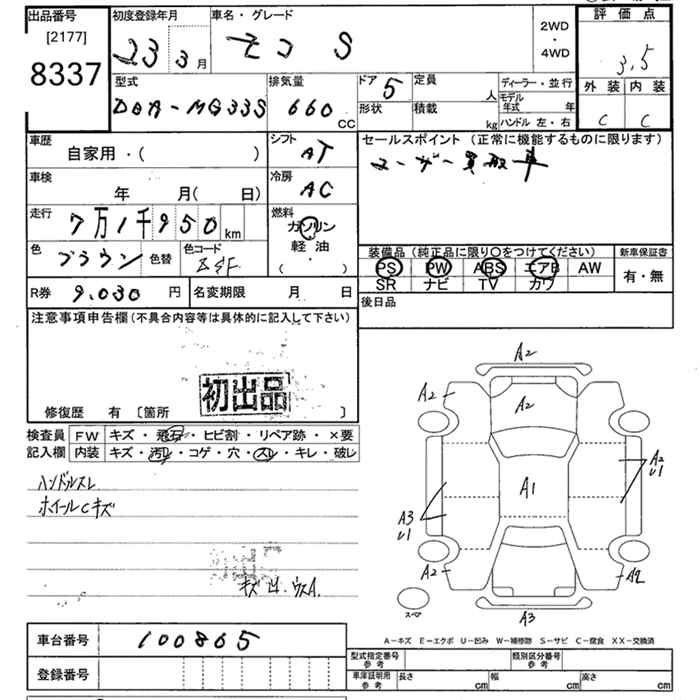 出品番号
[2177]
8337
初度登録年月
23 3月
車名・グレード
モコ S
2WD
・
4WD
評価点
3.5
外装 内装
C C
型式
DBA-MG33S
排気量
660
CC
ドア 5
形状
定員
人
積載
kg
ディーラー・並行
モデル
年式 年
ハンドル 左・右
車歴
自家用・( )
シフト
AT
セールスポイント (正常に機能するものに限ります)
ユーザー買取車
車検
年 月( 日)
冷房
AC
走行
7万1千950 km
燃料
ガソリン
軽油
( )
色
ブラウン 色替
色コード
装備品 (純正品に限り○をつけてください)
PS PW ABS エアB AW
SR ナビ TV カワ
新車保証書
有・無
R券 9,030 円
名変期限 月 日
後日品
注意事項申告欄 (不具合内容等は具体的に記入して下さい)
初出品
修復歴 有 [箇所 ]
検査員
記入欄
FW キズ・飛石・ヒビ割・リペア跡・×要
内装 キズ・汚レ・コゲ・穴・スレ・キレ・破レ
ハンドルスレ
ホイールCキズ
A2
A2
A2
A1
A2
U1
A3
U1
A2
A2
A3
スペア
A-キズ E-エクボ U-凹み W-補修跡 S-サビ C-腐食 XX-交換済
車台番号 100865
登録番号
型式指定番号
参考
類別区分番号
参考
車庫証明用
参考
長さ cm
幅 cm
高さ cm